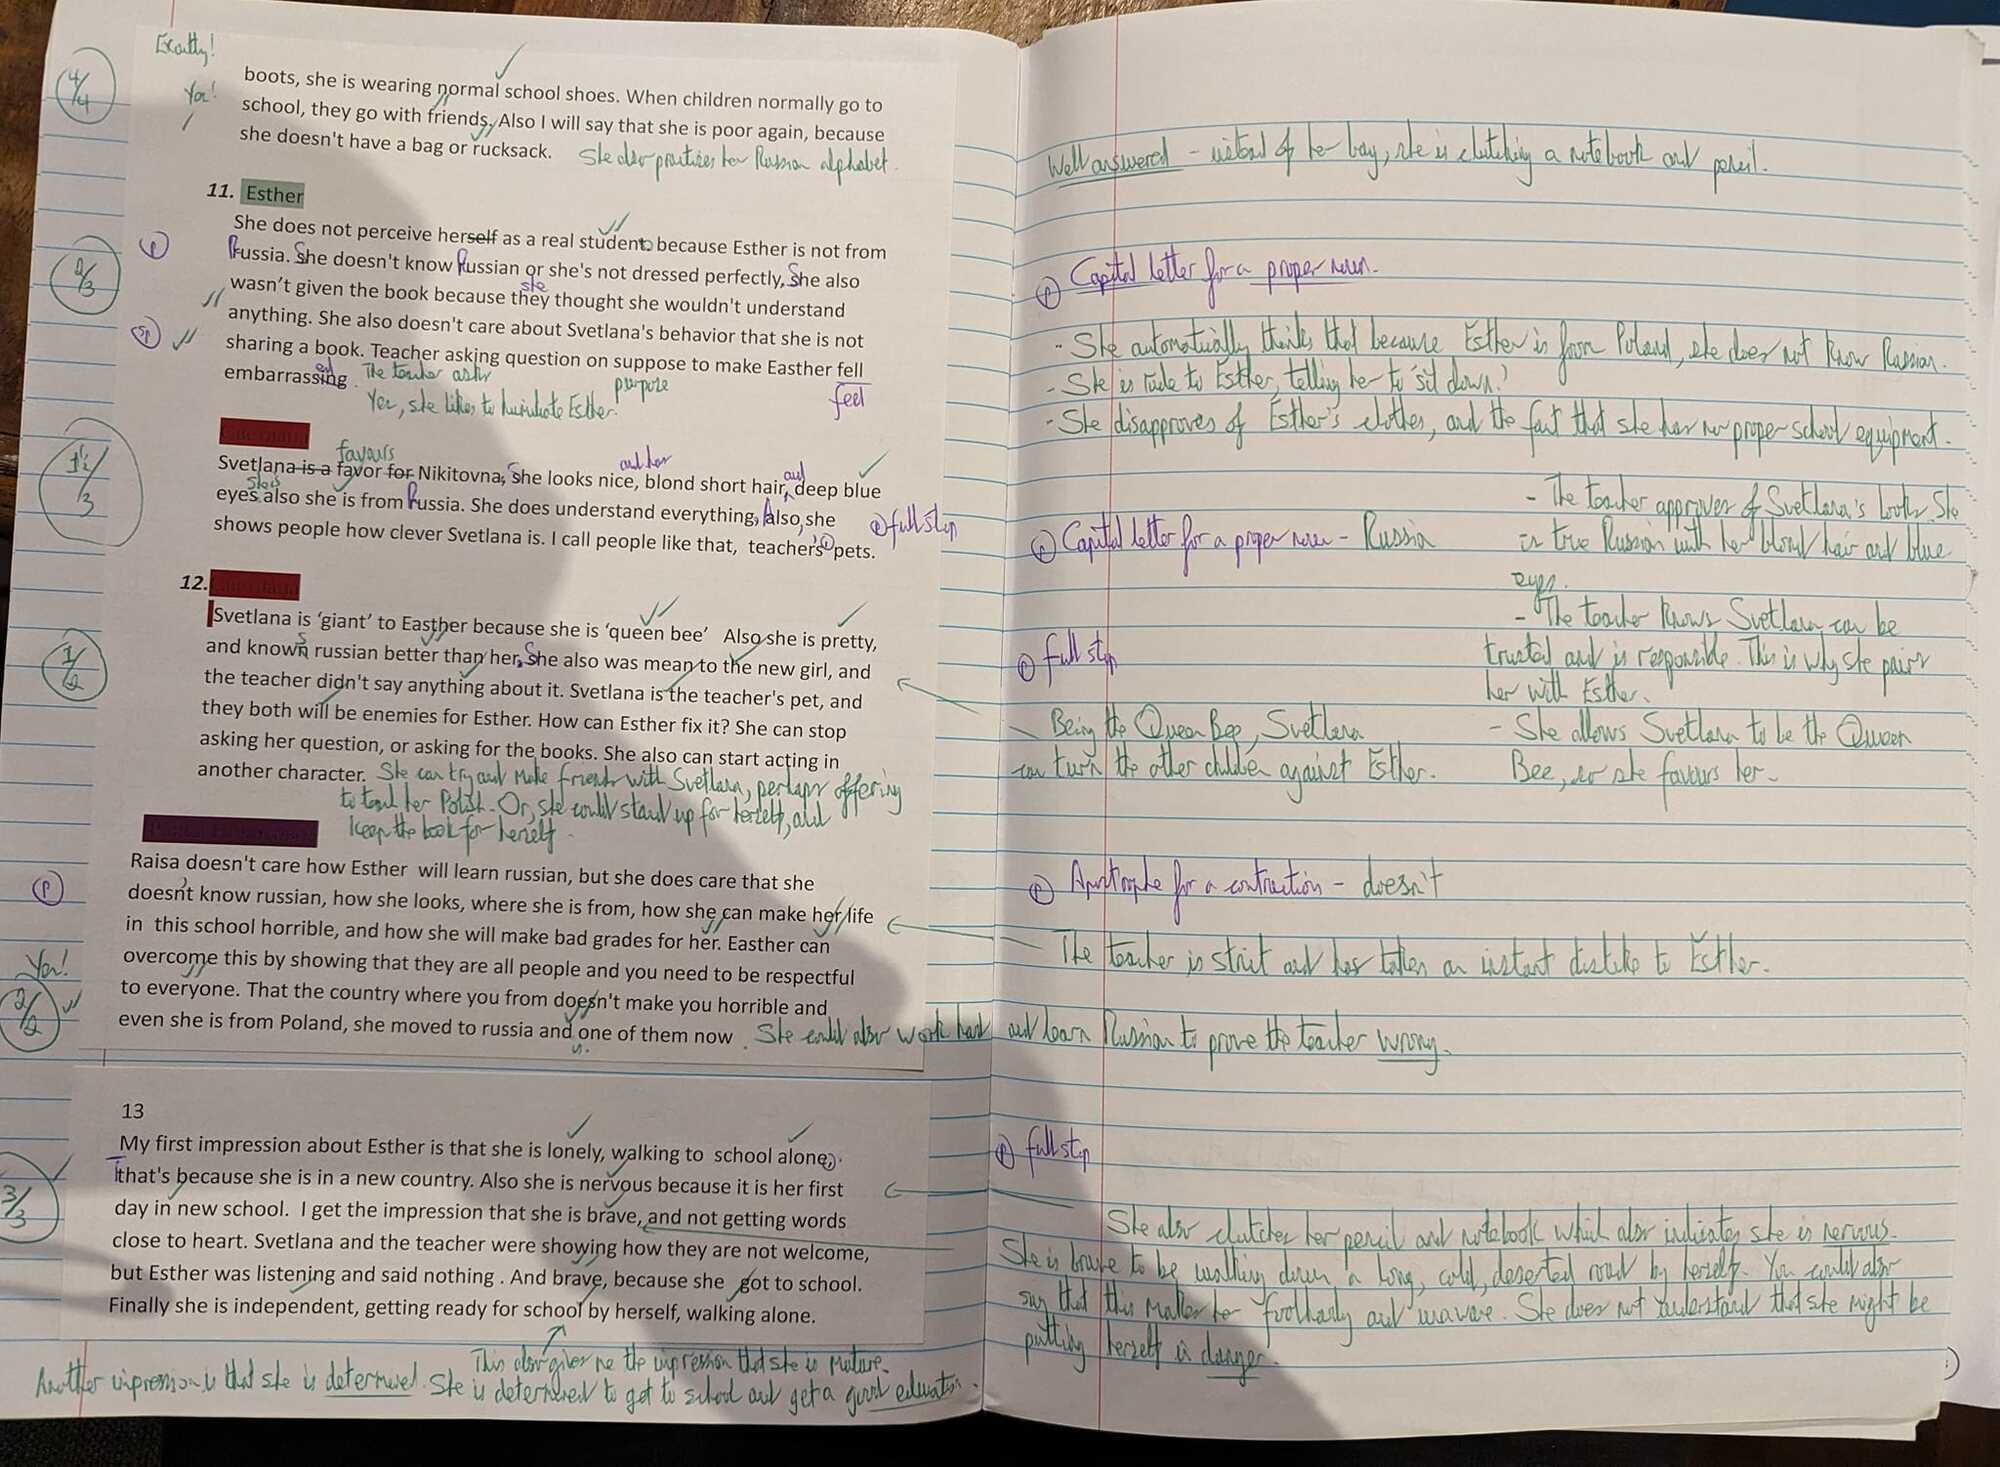 Exactly!
4/4
boots, she is wearing normal school shoes. When children normally go to
Yes!
school, they go with friends. Also I will say that she is poor again, because
she doesn't have a bag or rucksack. She also practises her Russian alphabet.
11. Esther
She does not perceive herself as a real student because Esther is not from
P
Russia. She doesn't know Russian or she's not dressed perfectly, She also
2/3
she
wasn't given the book because they thought she wouldn't understand
anything. She also doesn't care about Svetlana's behavior that she is not
Sp
sharing a book. Teacher asking question on suppose to make Easther fell
embarrassing. The teacher asks
ed
purpose
feel
Yes, she likes to humiliate Esther.
favours
and her
and
Svetlana is a favor for Nikitovna, She looks nice, blond short hair, deep blue
1½/3
She is
eyes also she is from Russia. She does understand everything, Also, she
P full stop
shows people how clever Svetlana is. I call people like that, teacher's pets.
12.
Svetlana is 'giant' to Easther because she is 'queen bee' Also she is pretty,
1/2
and known russian better than her, She also was mean to the new girl, and
the teacher didn't say anything about it. Svetlana is the teacher's pet, and
they both will be enemies for Esther. How can Esther fix it? She can stop
asking her question, or asking for the books. She also can start acting in
another character. She can try and make friends with Svetlana, perhaps offering
to teach her Polish. Or, she could stand up for herself, and
keep the book for herself.
Raisa doesn't care how Esther will learn russian, but she does care that she
P
doesn't know russian, how she looks, where she is from, how she can make her life
in this school horrible, and how she will make bad grades for her. Easther can
Yes!
overcome this by showing that they are all people and you need to be respectful
2/2
to everyone. That the country where you from doesn't make you horrible and
even she is from Poland, she moved to russia and one of them now. She could also work hard and learn Russian to prove the teacher wrong.
13
My first impression about Esther is that she is lonely, walking to school alone,
that's because she is in a new country. Also she is nervous because it is her first
3/3
day in new school. I get the impression that she is brave, and not getting words
close to heart. Svetlana and the teacher were showing how they are not welcome,
but Esther was listening and said nothing . And brave, because she got to school.
Finally she is independent, getting ready for school by herself, walking alone.
This also gives me the impression that she is mature.
Another impression is that she is determined. She is determined to get to school and get a good education.
Well answered - instead of her bag, she is clutching a notebook and pencil.
P Capital letter for a proper noun.
- She automatically thinks that because Esther is from Poland, she does not know Russian.
- She is rude to Esther, telling her to 'sit down.'
- She disapproves of Esther's clothes, and the fact that she has no proper school equipment.
- The teacher approves of Svetlana's looks. She
P Capital letter for a proper noun - Russia
is true Russian with her blond hair and blue
eyes.
- The teacher knows Svetlana can be
P full stop
trusted and is responsible. This is why she pairs
her with Esther.
Being the Queen Bee, Svetlana
can turn the other children against Esther.
- She allows Svetlana to be the Queen
Bee, so she favours her.
P Apostrophe for a contraction - doesn't
The teacher is strict and has taken an instant dislike to Esther.
P full stop
She also clutches her pencil and notebook which also indicates she is nervous.
She is brave to be walking down a long, cold, deserted road by herself. You could also
say that this makes her foolhardy and unaware. She does not understand that she might be
putting herself in danger.